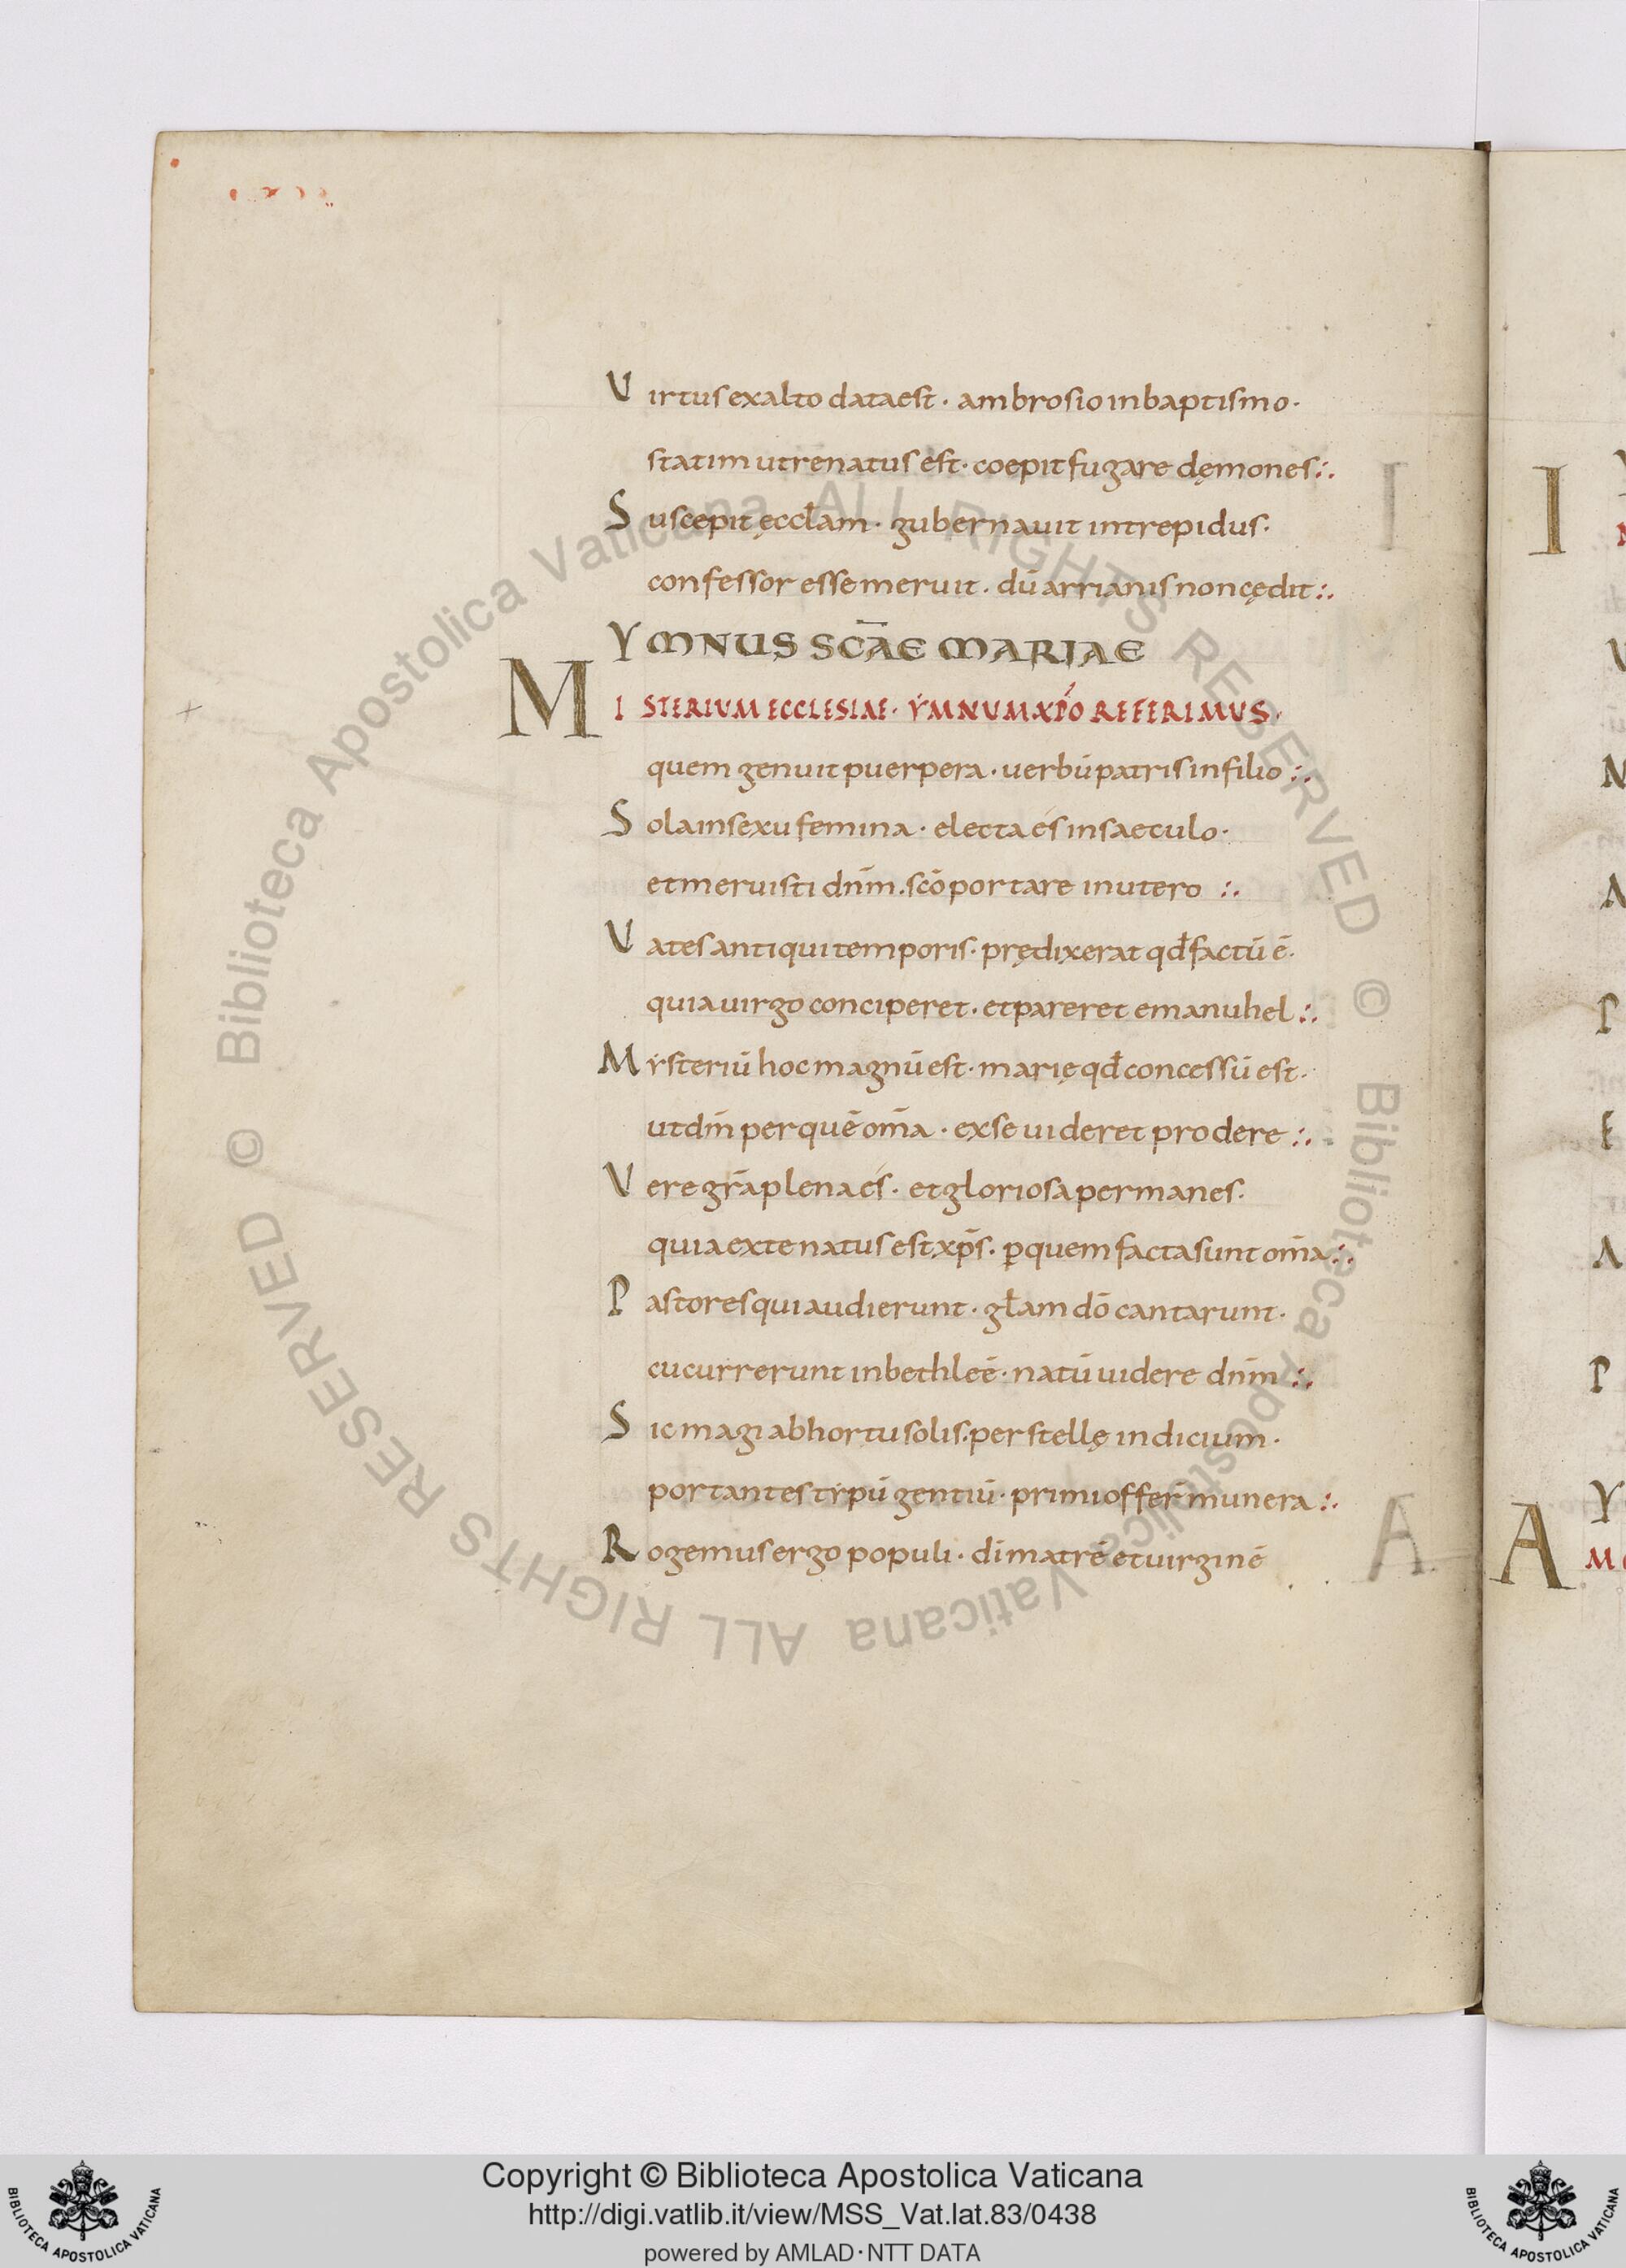 Virtus exalto data est · ambrosio inbaptismo ·
statim utrenatus est · coepit fugare dęmones :.
Suscepit ęccl̄am · gubernauit intrepidus ·
confessor esse meruit · dū arrianis non cędit :.
YMNUS SC̄AE MARIAE
MISTERIUM ECCLESIAE · YMNUM XP̄O REFERIMUS ·
quem genuit puerpera · uerbū patris in filio :.
Sola insexu femina · electa és insaeculo ·
et meruisti dn̄m · sc̄o portare inutero :.
Vates antiqui temporis · prędixerat qd̄ factū ē ·
quia uirgo conciperet · et pareret emanuhel :.
Mysteriū hoc magnū est · marię qd̄ concessū est ·
ut dm̄ per quē om̄a · ex se uideret prodere :.
Vere gr̄a plena és · et gloriosa permanes ·
quia exte natus est xp̄s · ꝑ quem facta sunt om̄a :.
Pastores qui audierunt · gl̄am dō cantarunt ·
cucurrerunt inbethleē · natū uidere dn̄m :.
Sic magi abhortu solis · per stellę indicium ·
portantes typū gentiū · primi offer̄ munera :.
Rogemus ergo populi · dī matrē et uirginē
I
A
© Biblioteca Apostolica Vaticana ALL RIGHTS RESERVED © Biblioteca Apostolica Vaticana ALL RIGHTS RESERVED
Copyright © Biblioteca Apostolica Vaticana
http://digi.vatlib.it/view/MSS_Vat.lat.83/0438
powered by AMLAD·NTT DATA
BIBLIOTECA APOSTOLICA VATICANA
BIBLIOTECA APOSTOLICA VATICANA